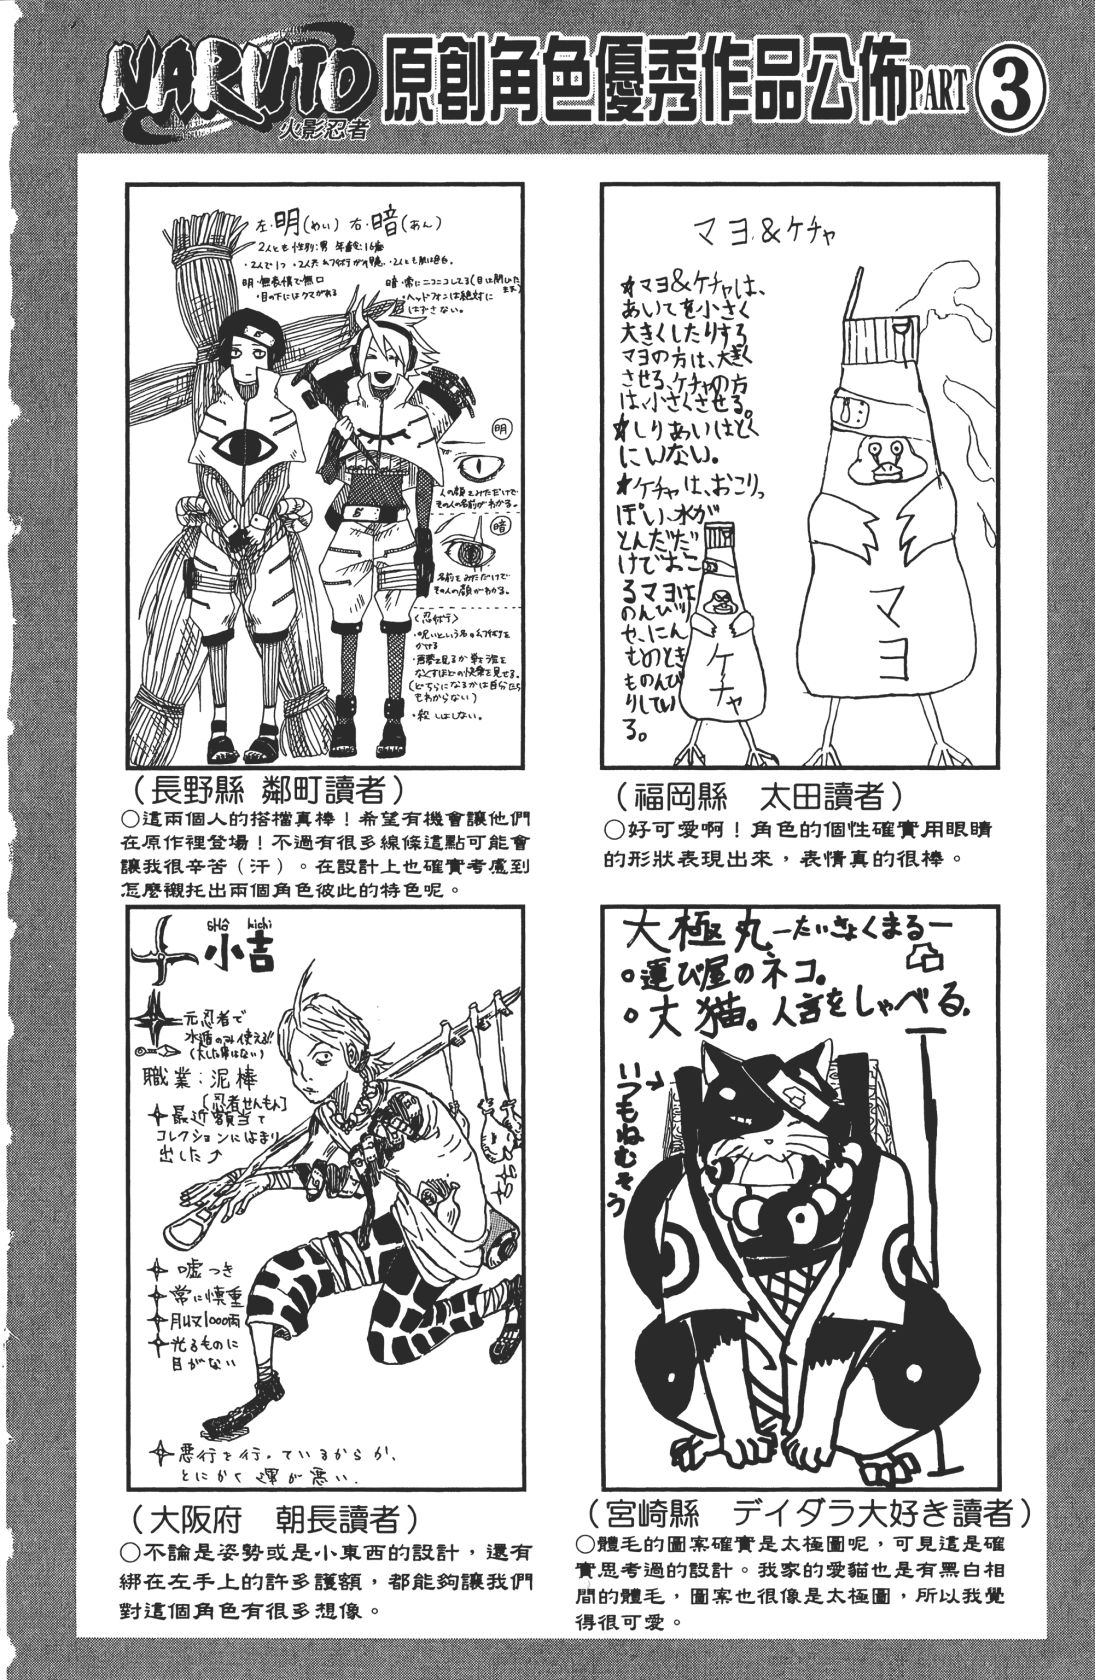 NARUTO
火影忍者
原創角色優秀作品公佈PART 3
左・明(めい) 右・暗(あん)
2人とも性別:男 年齢:16歳
明・無表情で無口
・目の下にはクマがある
暗・常にニコニコしてる(目は閉じたまま)
・ヘッドフォンは絶対に
はずさない。
明
人の顔をみただけで
その人の名前がわかる。
暗
名前をみただけで
その人の顔がわかる。
・呪いという名の幻術を
かける
(どちらになるかは自分たち
もわからない)
・殺しはしない。
(長野縣 鄰町讀者)
○這兩個人的搭檔真棒！希望有機會讓他們
在原作裡登場！不過有很多線條這點可能會
讓我很辛苦（汗）。在設計上也確實考慮到
怎麼襯托出兩個角色彼此的特色呢。
マヨ&ケチャ
★マヨ&ケチャは、
あいてを小さく
大きくしたりする
マヨの方は、大きく
させる、ケチャの方
は、小さくさせる。
★しりあいはとく
にいない。
★ケチャは、おこりっ
ぽい、水が
とんだだ
けでおこ
るマヨは
のんびり
や、にん
むのとき
ものんび
りしてい
る。
ケチャ
マヨ
(福岡縣 太田讀者)
○好可愛啊！角色的個性確實用眼睛
的形狀表現出來，表情真的很棒。
sHô kichi
小吉
元忍者で
水遁のみ使える!!
(大した事はない)
職業:泥棒
[忍者せんもん]
最近額当て
コレクションにはまり
出した
嘘つき
常に慎重
月収1000両
光るものに
目がない
悪行を行っているからか、
とにかく運が悪い.
(大阪府 朝長讀者)
○不論是姿勢或是小東西的設計，還有
綁在左手上的許多護額，都能夠讓我們
對這個角色有很多想像。
大極丸ーたいきょくまるー
○運び屋のネコ。
○大猫。人言をしゃべる.
いつもねむそう
(宮崎縣 デイダラ大好き讀者)
○體毛的圖案確實是太極圖呢，可見這是確
實思考過的設計。我家的愛貓也是有黑白相
間的體毛，圖案也很像是太極圖，所以我覺
得很可愛。